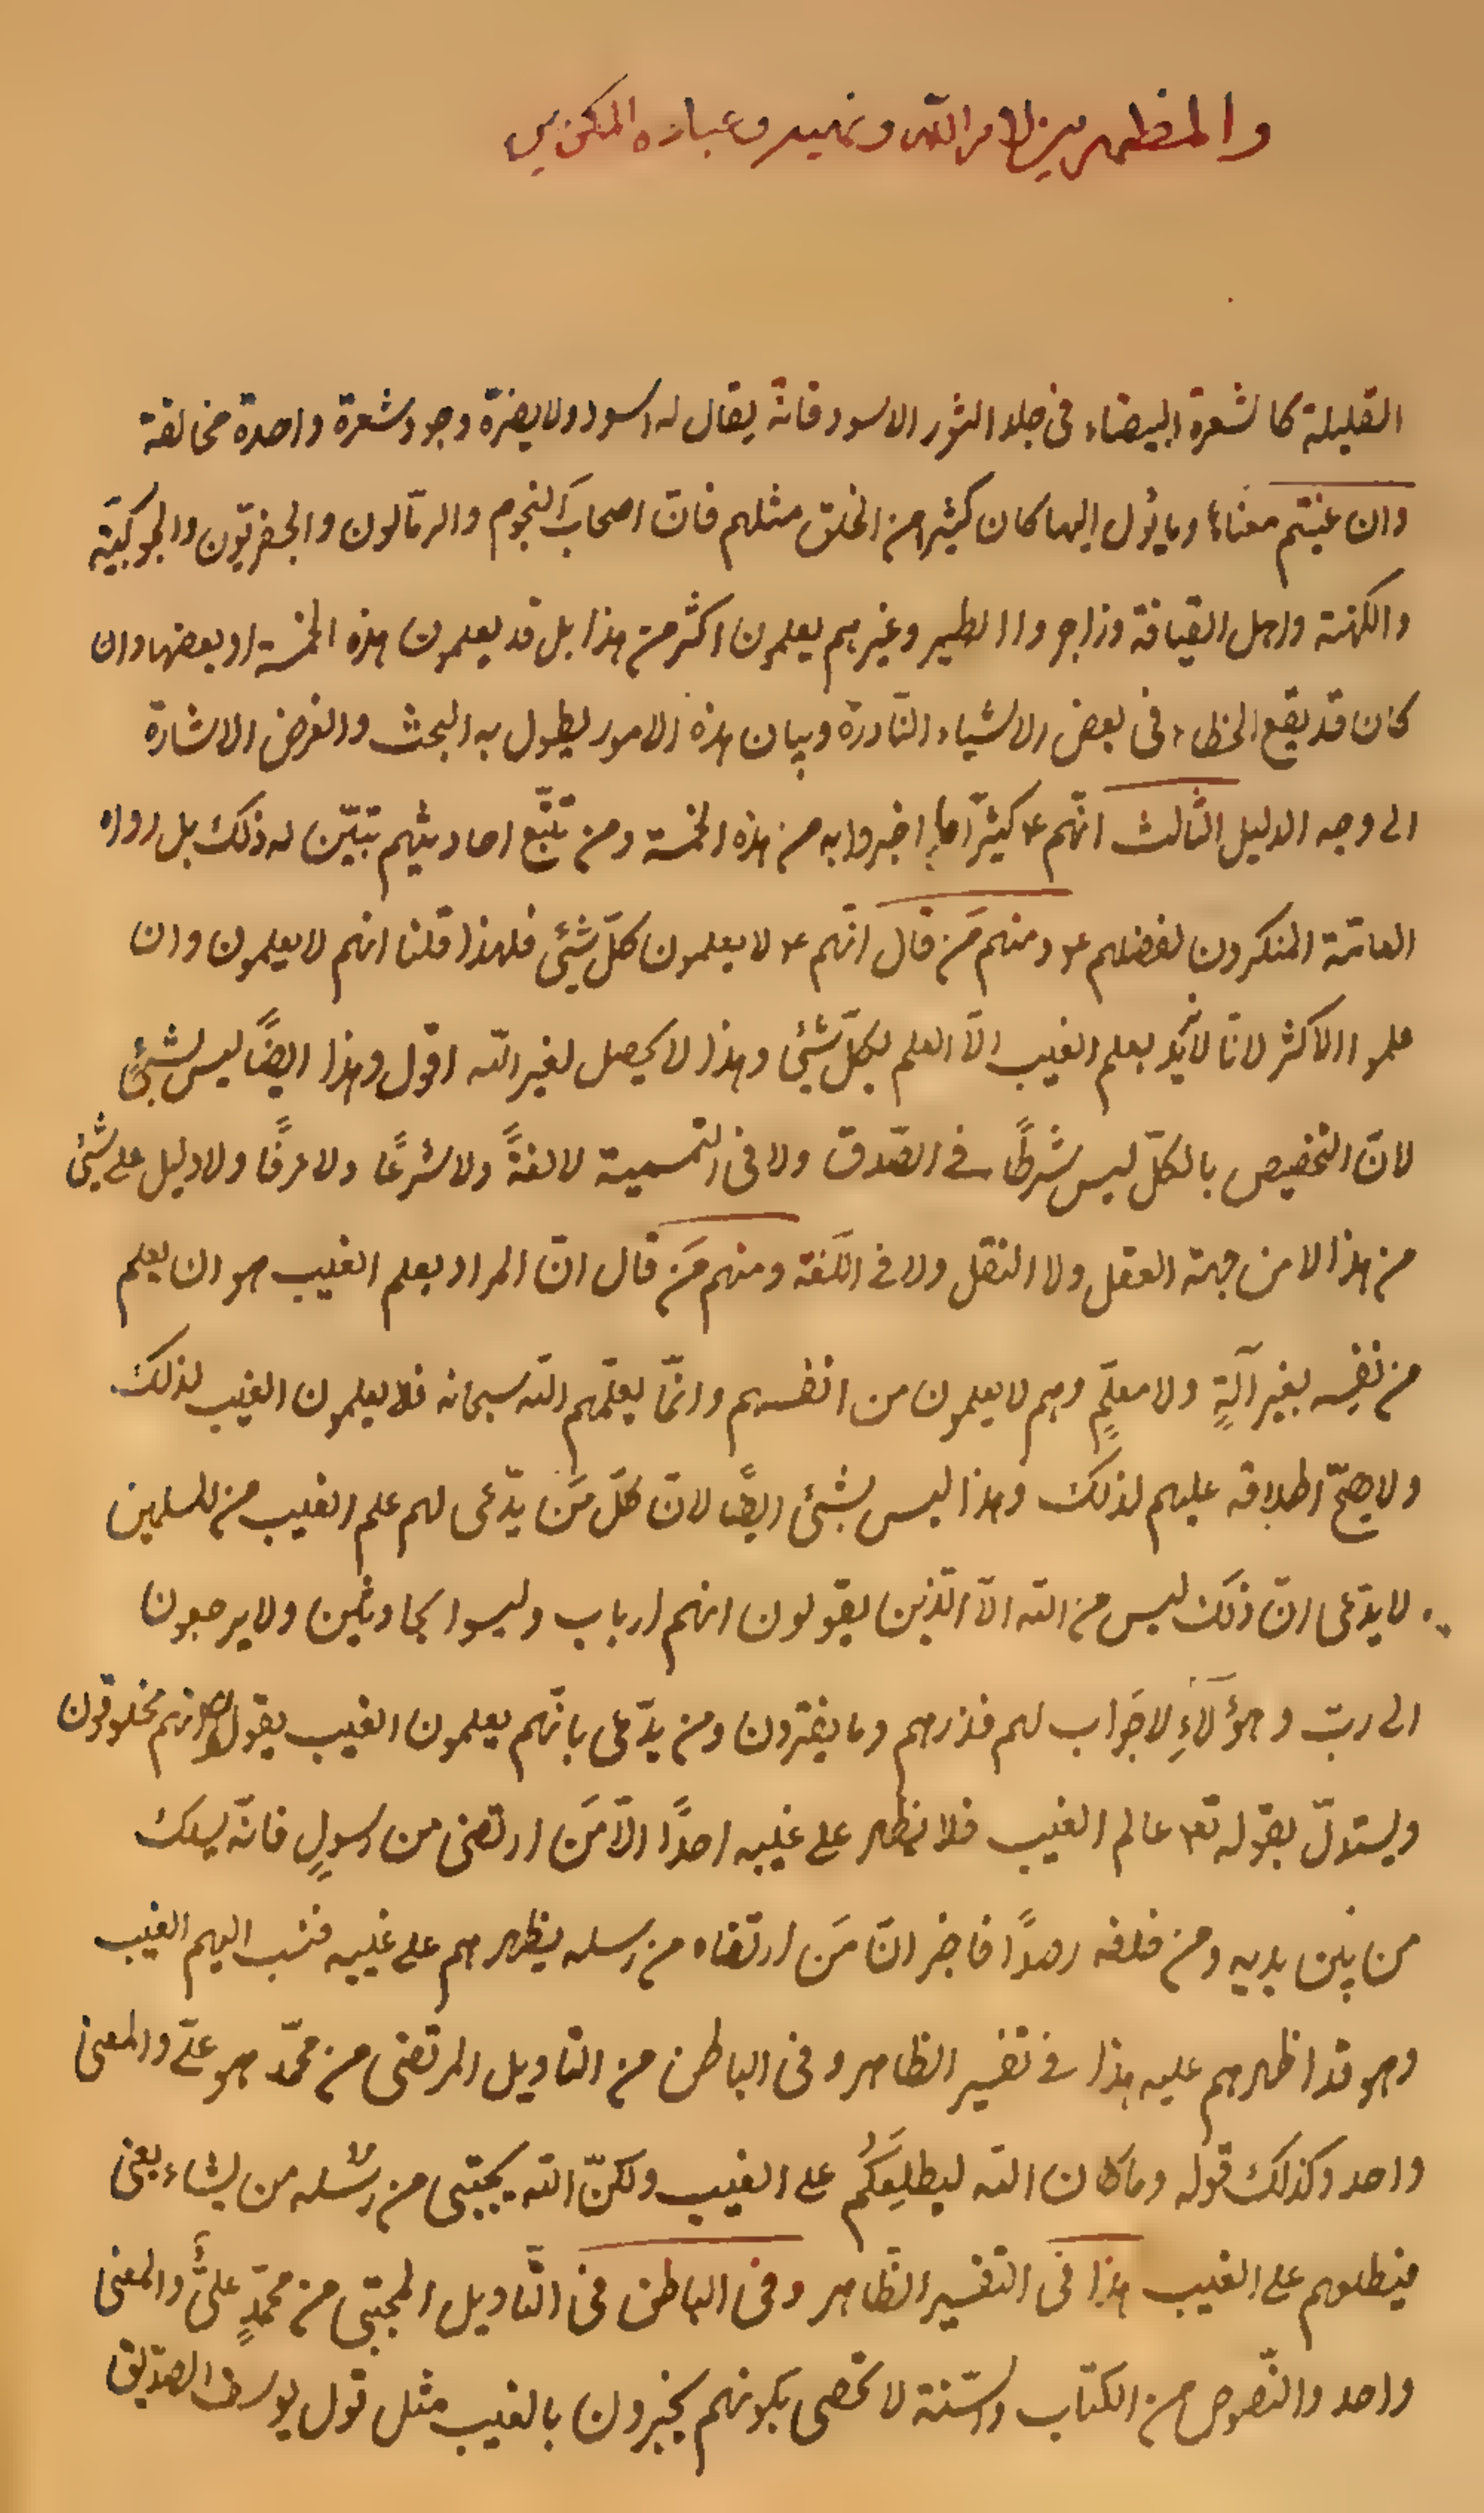 والمظهرين لامر الله ونهيه وعباده المكرمين
القليلة كالشعرة البيضاء فى جلد الثور الاسود فانهّ يقال له اسود ولا يضرّه وجود شعرة واحدة مخالفة
وان عنيتم معناها وما يؤل اليها كان كثيرا من الخلق مثلهم فانّ اصحابَ النجوم والرمّالون والجفريّون والجوكيّة
والكهنة واهل القيافة وزاجروا الطير وغيرهم يعلمون اكثر من هذا بل قد يعلمون هذه الخمسة او بعضها وان
كان قد يقع الخطاء فى بعض الاشياء النّادرة وبيان هذه الامور يطول به البحث والغرض الاشارة
الى وجه الدليل الثالث انّهم ع كثيرًا ما اخبروا به من هذه الخمسة ومن تتبّع احاديثهم تبيّن له ذلك بل رواه
العامّة المنكرون لفضلهم ع ومنهم مَن قال انّهم ع لا يعلمون كلّ شيئ فلهذا قلنا انهم لا يعلمون وان
علموا الاكثر لانّا لا نريد بعلم الغيب الّا العلم بكلّ شيئ وهذا لا يحصل لغير الله اقول وهذا ايضًا ليس بشيئ
لانّ التخصيص بالكلّ ليس شرطًا فى الصّدق ولا فى التّسمية لا لغةً ولا شرعًا ولا عرفًا ولا دليل على شيئ
من هذا لا من جهة العقل ولا النقل ولا فى اللّغة ومنهم مَن قال انّ المراد بعلم الغيب هو ان يعلم
من نفسه بغير آلةٍ ولا معلّمٍ وهم لا يعلمون من انفسهم وانّما يعلّمهم الله سبحانه فلا يعلمون الغيب لذلك
ولا يصحّ اطلاقه عليهم لذلك وهذا ليس بشيئ ايضًا لانّ كلّ مَن يدّعى لهم علم الغيب من المسلمين
لا يدّعى انّ ذلك ليس من الله الّا الّذين يقولون انهم ارباب وليسوا بحادثين ولا يرجعون
الى ربّ وهؤلآءِ لا جَواب لهم فذرهم وما يفترون ومن يدّعى بانّهم يعلمون الغيب يقول انهم مخلوقون
ويستدلّ بقوله تع عالم الغيب فلا يظهر على غيبه احدًا الّا مَن ارتضى من رسولٍ فانّه يسلك
من بين يديه ومن خلفه رصدًا فاخبر انّ مَن ارتضاه من رسله يظهرهم على غيبه فنسب اليهم الغيب
وهو قد اظهرهم عليه هذا فى تفسير الظاهر وفى الباطن من التاويل المرتضى من محمّد هو علىّ والمعنى
واحد وكذلك قوله وما كان الله ليطلِعَكُم على الغيب ولكنّ الله يجتبى من رسُله من يشاء يعنى
فيطلعهم على الغيب هذا فى التفسير الظّاهر وفى الباطن فى التّاويل المجتبى من محمّدٍ علىٌّ والمعنى
واحد والنّصوص من الكتاب والسّنة لا تحصى بكونهم يخبرون بالغيب مثل قول يوسف الصدّيق